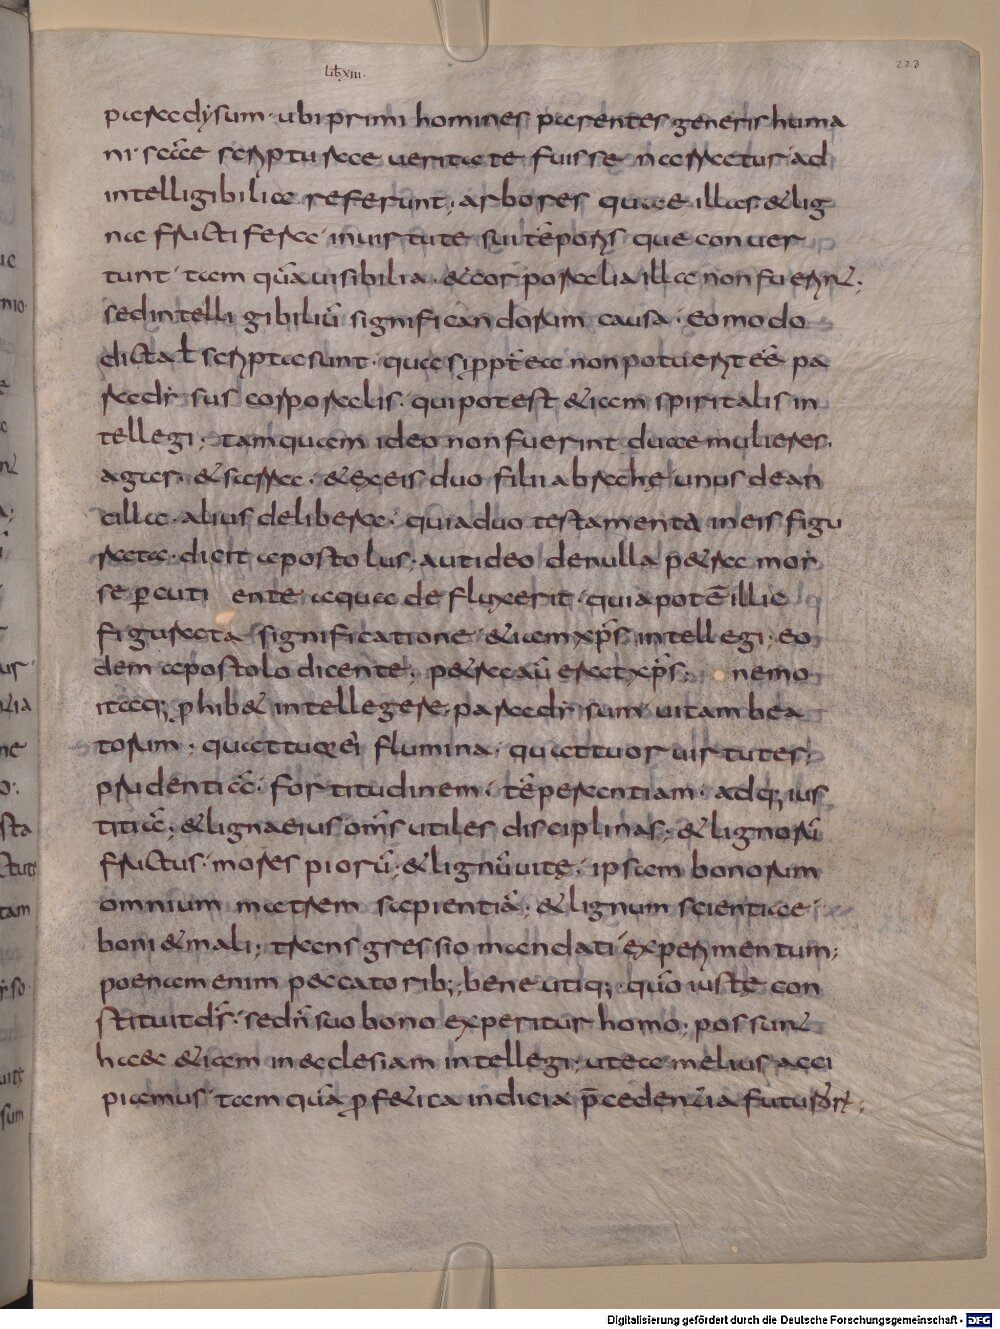 Lib xiii.
223
paradysum · ubi primi homines parentes generis huma
ni · sc̄ae scripturae ueritate fuisse narrantur ad
intelligibilia referunt; arbores quae illas & lig
na fructifera in uirtute sui tēporis que conuer
tunt tam quā uisibilia & corporalia illa non fuerint;
sed intelligibiliū significandorum causa · eo modo
dicta ł scripta sunt · quasi ppt̄ea non potuerit ēē pa
radisus corporalis · qui potest & iam spiritalis in
tellegi; tamquam ideo non fuerint duae mulieres ·
agar · & sarra · & ex eis duo filii abrahę unus de an
cilla · alius de libera · quia duo testamenta in eis figu
rata · dicit apostolus · aut ideo de nulla p&ra mor
se ꝑcuti ente aqua defluxerit · quia potē illic
figurata significatione & iam xp̄s intellegi · eo
dem apostolo dicente · p&ra aū erat xp̄s; nemo
itaq; ꝓhib& intellegere; paradisum uitam bea
torum · quattuor ei flumina · quattuor uirtutes ·
prudentiā · fortitudinem · tēperantiam · adq; ius
titiā; & ligna eius om̄s utiles disciplinas; & lignorū
fructus mores piorū; & lignū uitę · ipsam bonorum
omnium matrem sapientiā; & lignum scientiae
boni & mali; transgressio mandati experimentum;
poenam enim peccatorib; bene utiq; quō iustę con
stituit dr̄ · sed ñ suo bono experitur homo; possunt
haec & iam in ecclesiam intellegi · ut ea melius acci
piamus tam quā ꝓf&ica indicia p̄cedentia futurorū;
Digitalisierung gefördert durch die Deutsche Forschungsgemeinschaft - DFG